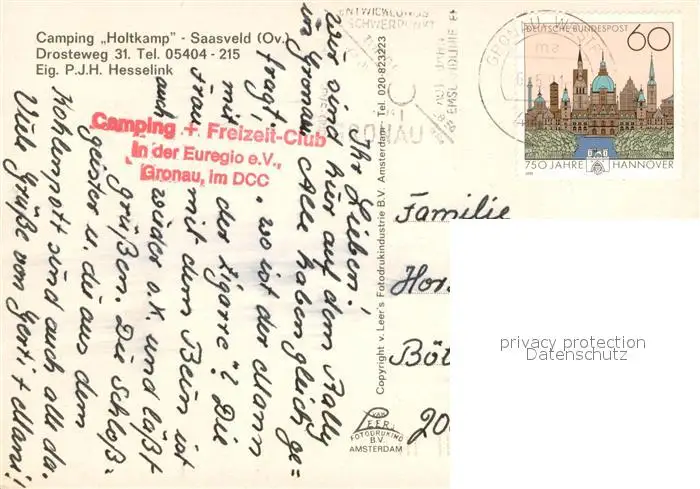 Camping „Holtkamp" - Saasveld (Ov.)
Drosteweg 31. Tel. 05404 - 215
Eig. P.J.H. Hesselink
Camping + Freizeit-Club
in der Euregio e.V.,
Gronau, im DCC
Ihr Lieben!
wir sind hier auf dem Rally
in Gronau. Alle haben gleich ge=
fragt, „wo ist der Mann
mit der Zigarre"? Die
Frau mit dem Bein ist
auch wieder o.k. und läßt
grüßen. Die Schloß=
geister u. die aus dem
Kohlenpott sind auch alle da.
Viele Grüße von Gerti + Mani!
Copyright v. Leer's Fotodrukindustrie B.V. Amsterdam - Tel. 020-823223
VAN
LEER'S
FOTODRUKIND
B.V.
AMSTERDAM
ENTWICKLUNGS
SCHWERPUNKT
GRONAU, WESTF
DEUTSCHE BUNDESPOST
60
750 JAHRE HANNOVER
Familie
Hor
Böt
20
privacy protection
Datenschutz